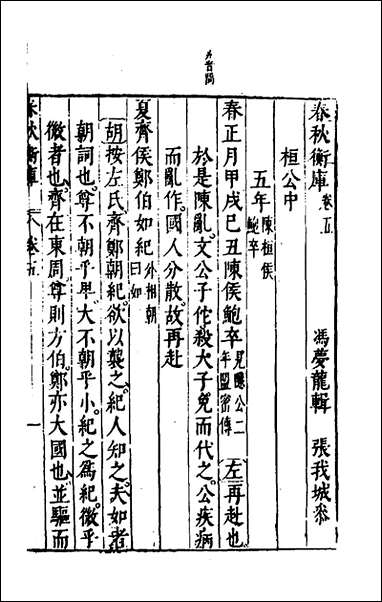 春秋衡庫 卷五 馮夢龍輯 張我城叅
桓公中
五年 陳桓侯鮑卒
春正月甲戌己丑陳侯鮑卒 見隱公二年盟密傳 左 再赴也
於是陳亂文公子佗殺大子免而代之公疾病
而亂作國人分散故再赴
夏齊侯鄭伯如紀 外相朝曰如
胡 按左氏齊鄭朝紀欲以襲之紀人知之夫如者
朝詞也尊不朝乎卑大不朝乎小紀之爲紀微乎
微者也齊在東周尊則方伯鄭亦大國也並驅而
春秋衡庫 卷五 一